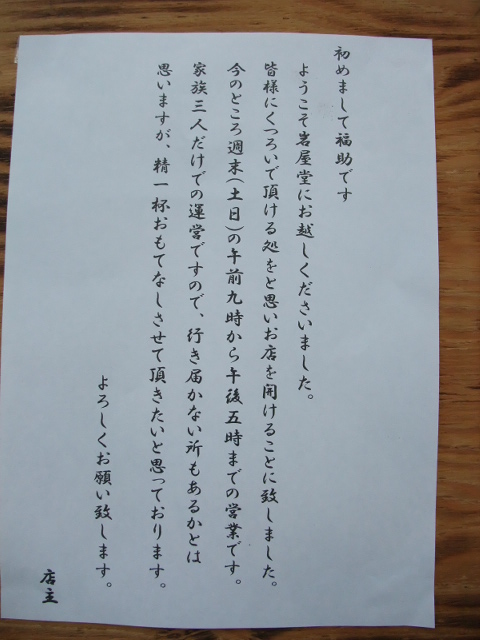 初めまして福助です
ようこそ岩屋堂にお越しくださいました。
皆様にくつろいで頂ける処をと思いお店を開けることに致しました。
今のところ週末(土日)の午前九時から午後五時までの営業です。
家族三人だけでの運営ですので、行き届かない所もあるかとは
思いますが、精一杯おもてなしさせて頂きたいと思っております。
よろしくお願い致します。
店主